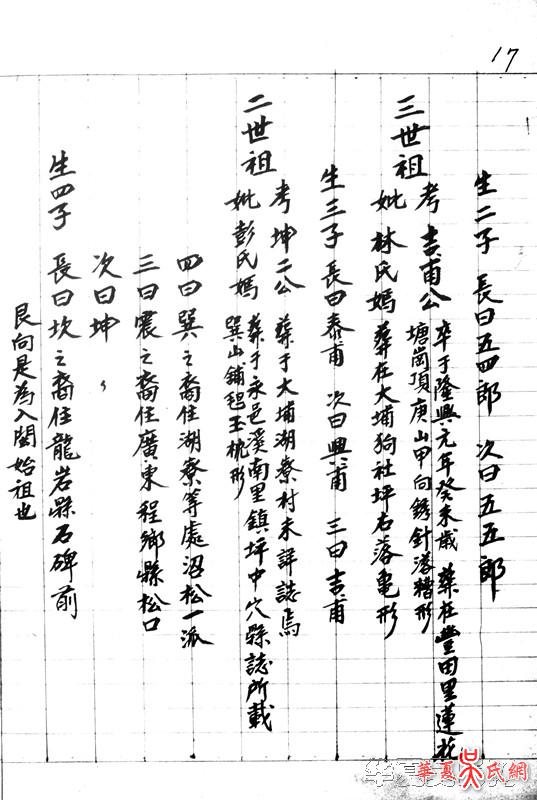 17
艮向是為入閩始祖也
生四子 長曰坎之裔住龍岩縣石碑前
次曰坤
三曰震之裔住廣東程鄉縣松口
四曰巽之裔住湖寮等處沼松一派
二世祖
考坤二公 葬于大埔湖寮村未詳誌焉
妣彭氏媽 葬于永邑溪南里鎮坪中穴縣誌所載
巽山鋪氈玉枕形
生三子 長曰泰甫 次曰興甫 三曰吉甫
三世祖
考吉甫公 卒于隆興元年癸未歲 葬在豐田里蓮花
塘崗頂庚山甲向銹針落糟形
妣林氏媽 葬在大埔狗社坪右落龜形
生二子 長曰五四郎 次曰五五郎
華夏吳氏網